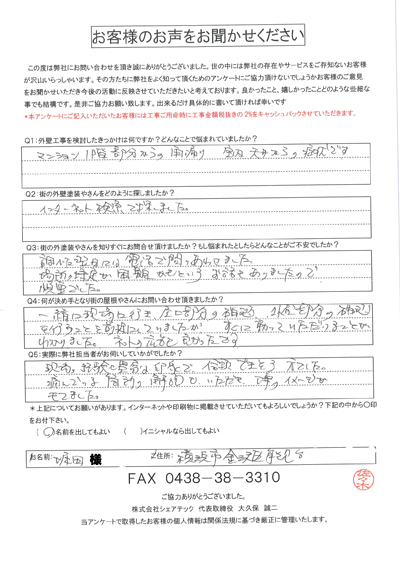 お客様のお声をお聞かせください
この度は弊社にお問い合わせを頂き誠にありがとうございました。世の中には弊社の存在やサービスをご存知ないお客様
が沢山いらっしゃいます。その方たちに弊社をよく知って頂くためのアンケートにご協力頂けないでしょうかお客様のご意見
をお聞かせいただき今後の活動に反映させていただきたいと考えております。良かったこと、嬉しかったことどのような些細な
事でも結構です。是非ご協力お願い致します。出来るだけ具体的に書いて頂ければ幸いです
*本アンケートにご記入いただいたお客様には工事ご用命時に工事金額税抜きの2%をキャッシュバックさせていただきます。
Q1:外壁工事を検討したきっかけは何ですか?どんなことで悩まれていましたか?
マンション 階部分からの雨漏り
Q2:街の外壁塗装やさんをどのように探しましたか?
インターネット検索で 来ました。
Q3:街の外塗装やさんを知りすぐにお問合せ頂けましたか?もし悩まれたとしたらどんなことがご不安でしたか?
調べた翌日には電話で問い合わせました。
場所の特定が困難 という お話も ありましたので
Q4:何が決め手となり街の屋根やさんにお問い合わせ頂きましたか?
一緒に現場に行き 部分の確認
を行うことを可能にしていましたが すぐに動いていただけることが
わかりました。ネットの広告も良かったです
Q5:実際に弊社担当者がお伺いしていかがでしたか?
現場 経験も豊富な印象で、信頼できそうでした。
の説明も いただき 工事のイメージが
もてました。
*上記についてお願いがあります。インターネットや印刷物に掲載させていただいてもよろしいでしょうか?下記の中から〇印
をお付け下さい。
(〇)名前を出してもよい ( )イニシャルなら出してもよい
お名前: 堀田 様 ご住所: 横浜市金沢区
FAX 0438-38-3310
ご協力ありがとうございました。
株式会社シェアテック 代表取締役 大久保 誠二
当アンケートで取得したお客様の個人情報は関係法規に基づき厳正に管理いたします。